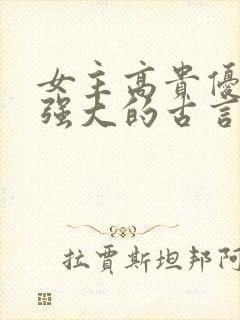 女主高貴優
强大的古言
拉賈斯坦邦阿